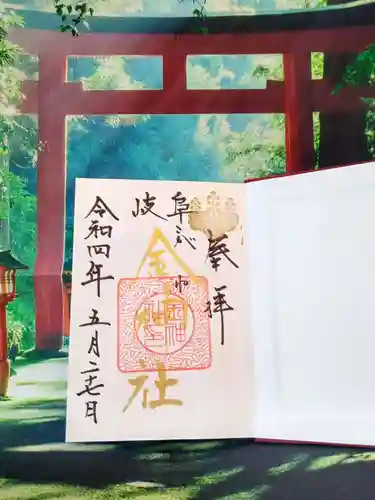 奉拝
岐阜
金神社
令和四年 五月二十七日